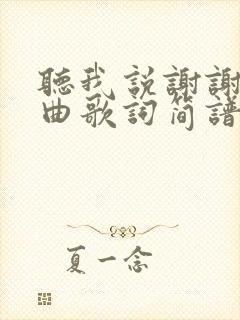 聽我説謝謝
曲歌詞简譜
夏一念